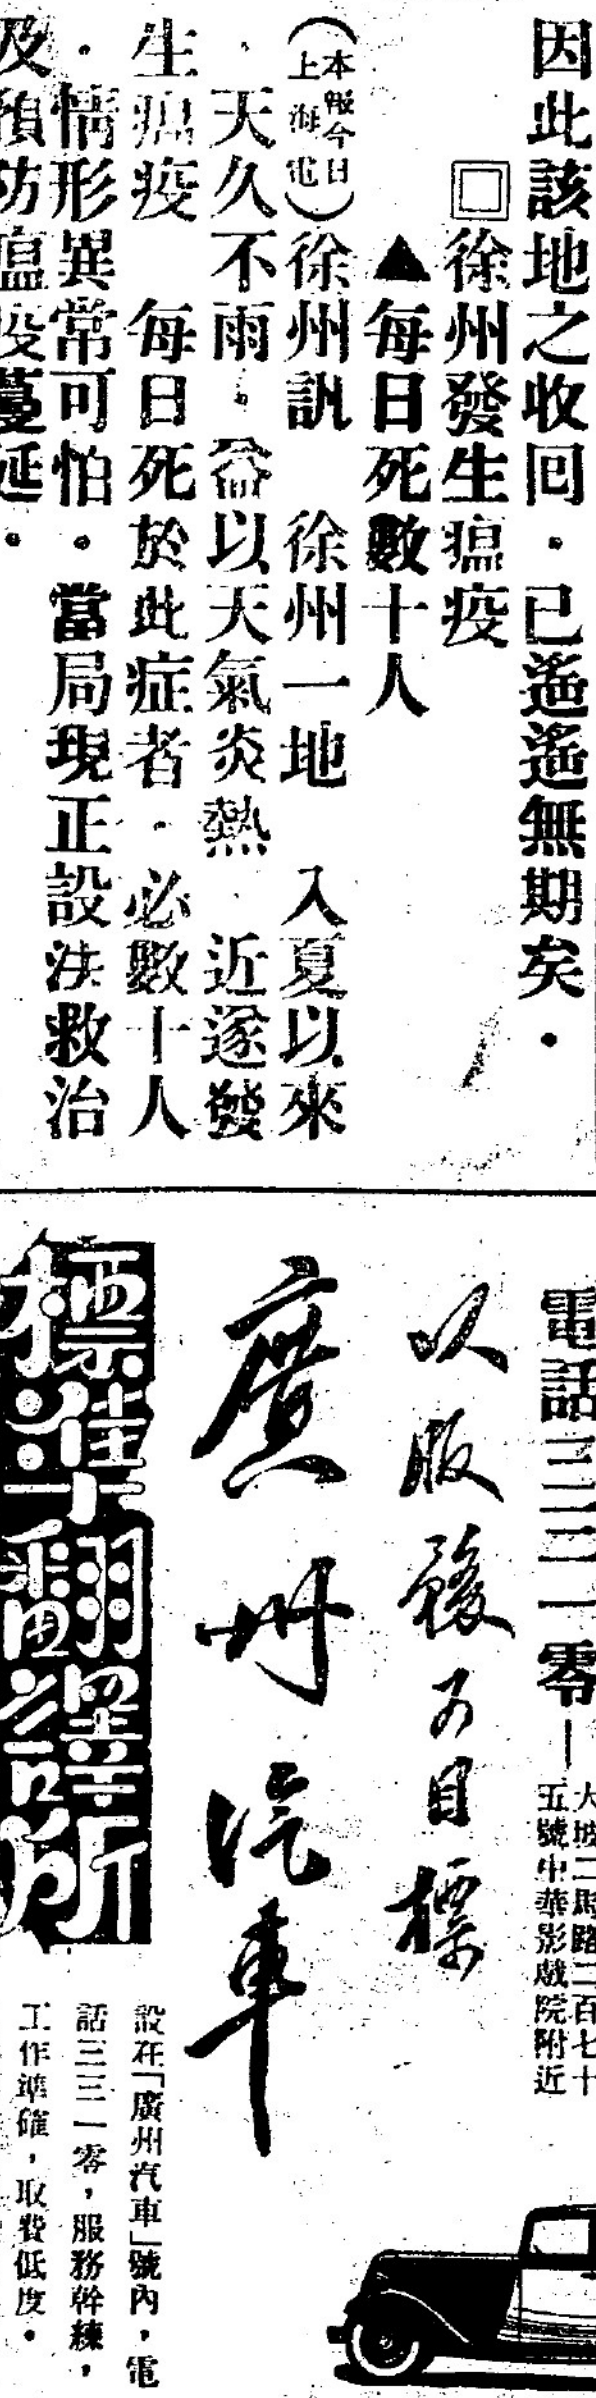 因此該地之收回．已遙遙無期矣．
回徐州發生瘟疫
▲每日死數十人
（本報今日上海電）徐州訊　徐州一地　入夏以來
．天久不雨．益以天氣炎熱．近遂發
生瘟疫　每日死於此症者．必數十人
．情形異常可怕．當局現正設法救治
及預防瘟疫蔓延．
電話三三二一零—
大坡二馬路二百七十
五號中華影戲院附近
以服務為目標
廣州汽車
標準翻譯所
設在「廣州汽車」號內，電
話三三一零，服務幹練，
工作準確，取費低度．